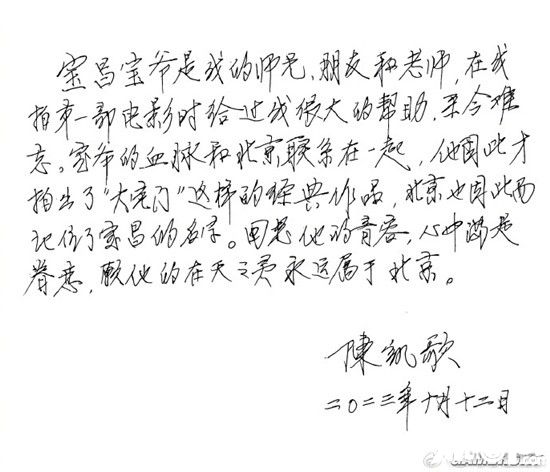 宝昌宝爷是我的师兄、朋友和老师，在我
拍第一部电影时给过我很大的帮助，至今难
忘。宝爷的血脉和北京联系在一起，他因此才
拍出了“大宅门”这样的经典作品，北京也因此而
记住了宝昌的名字。思想他的音容，心中满是
眷恋，愿他的在天之灵永远属于北京。
陳凯歌
二〇二三年十月十二日